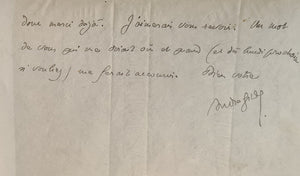 donc merci déjà. J'aimerais vous revoir. Un mot
de vous qui me dirait où et quand (et dès lundi prochain
si vouliez) me ferait accourir. Bien votre
André Gide